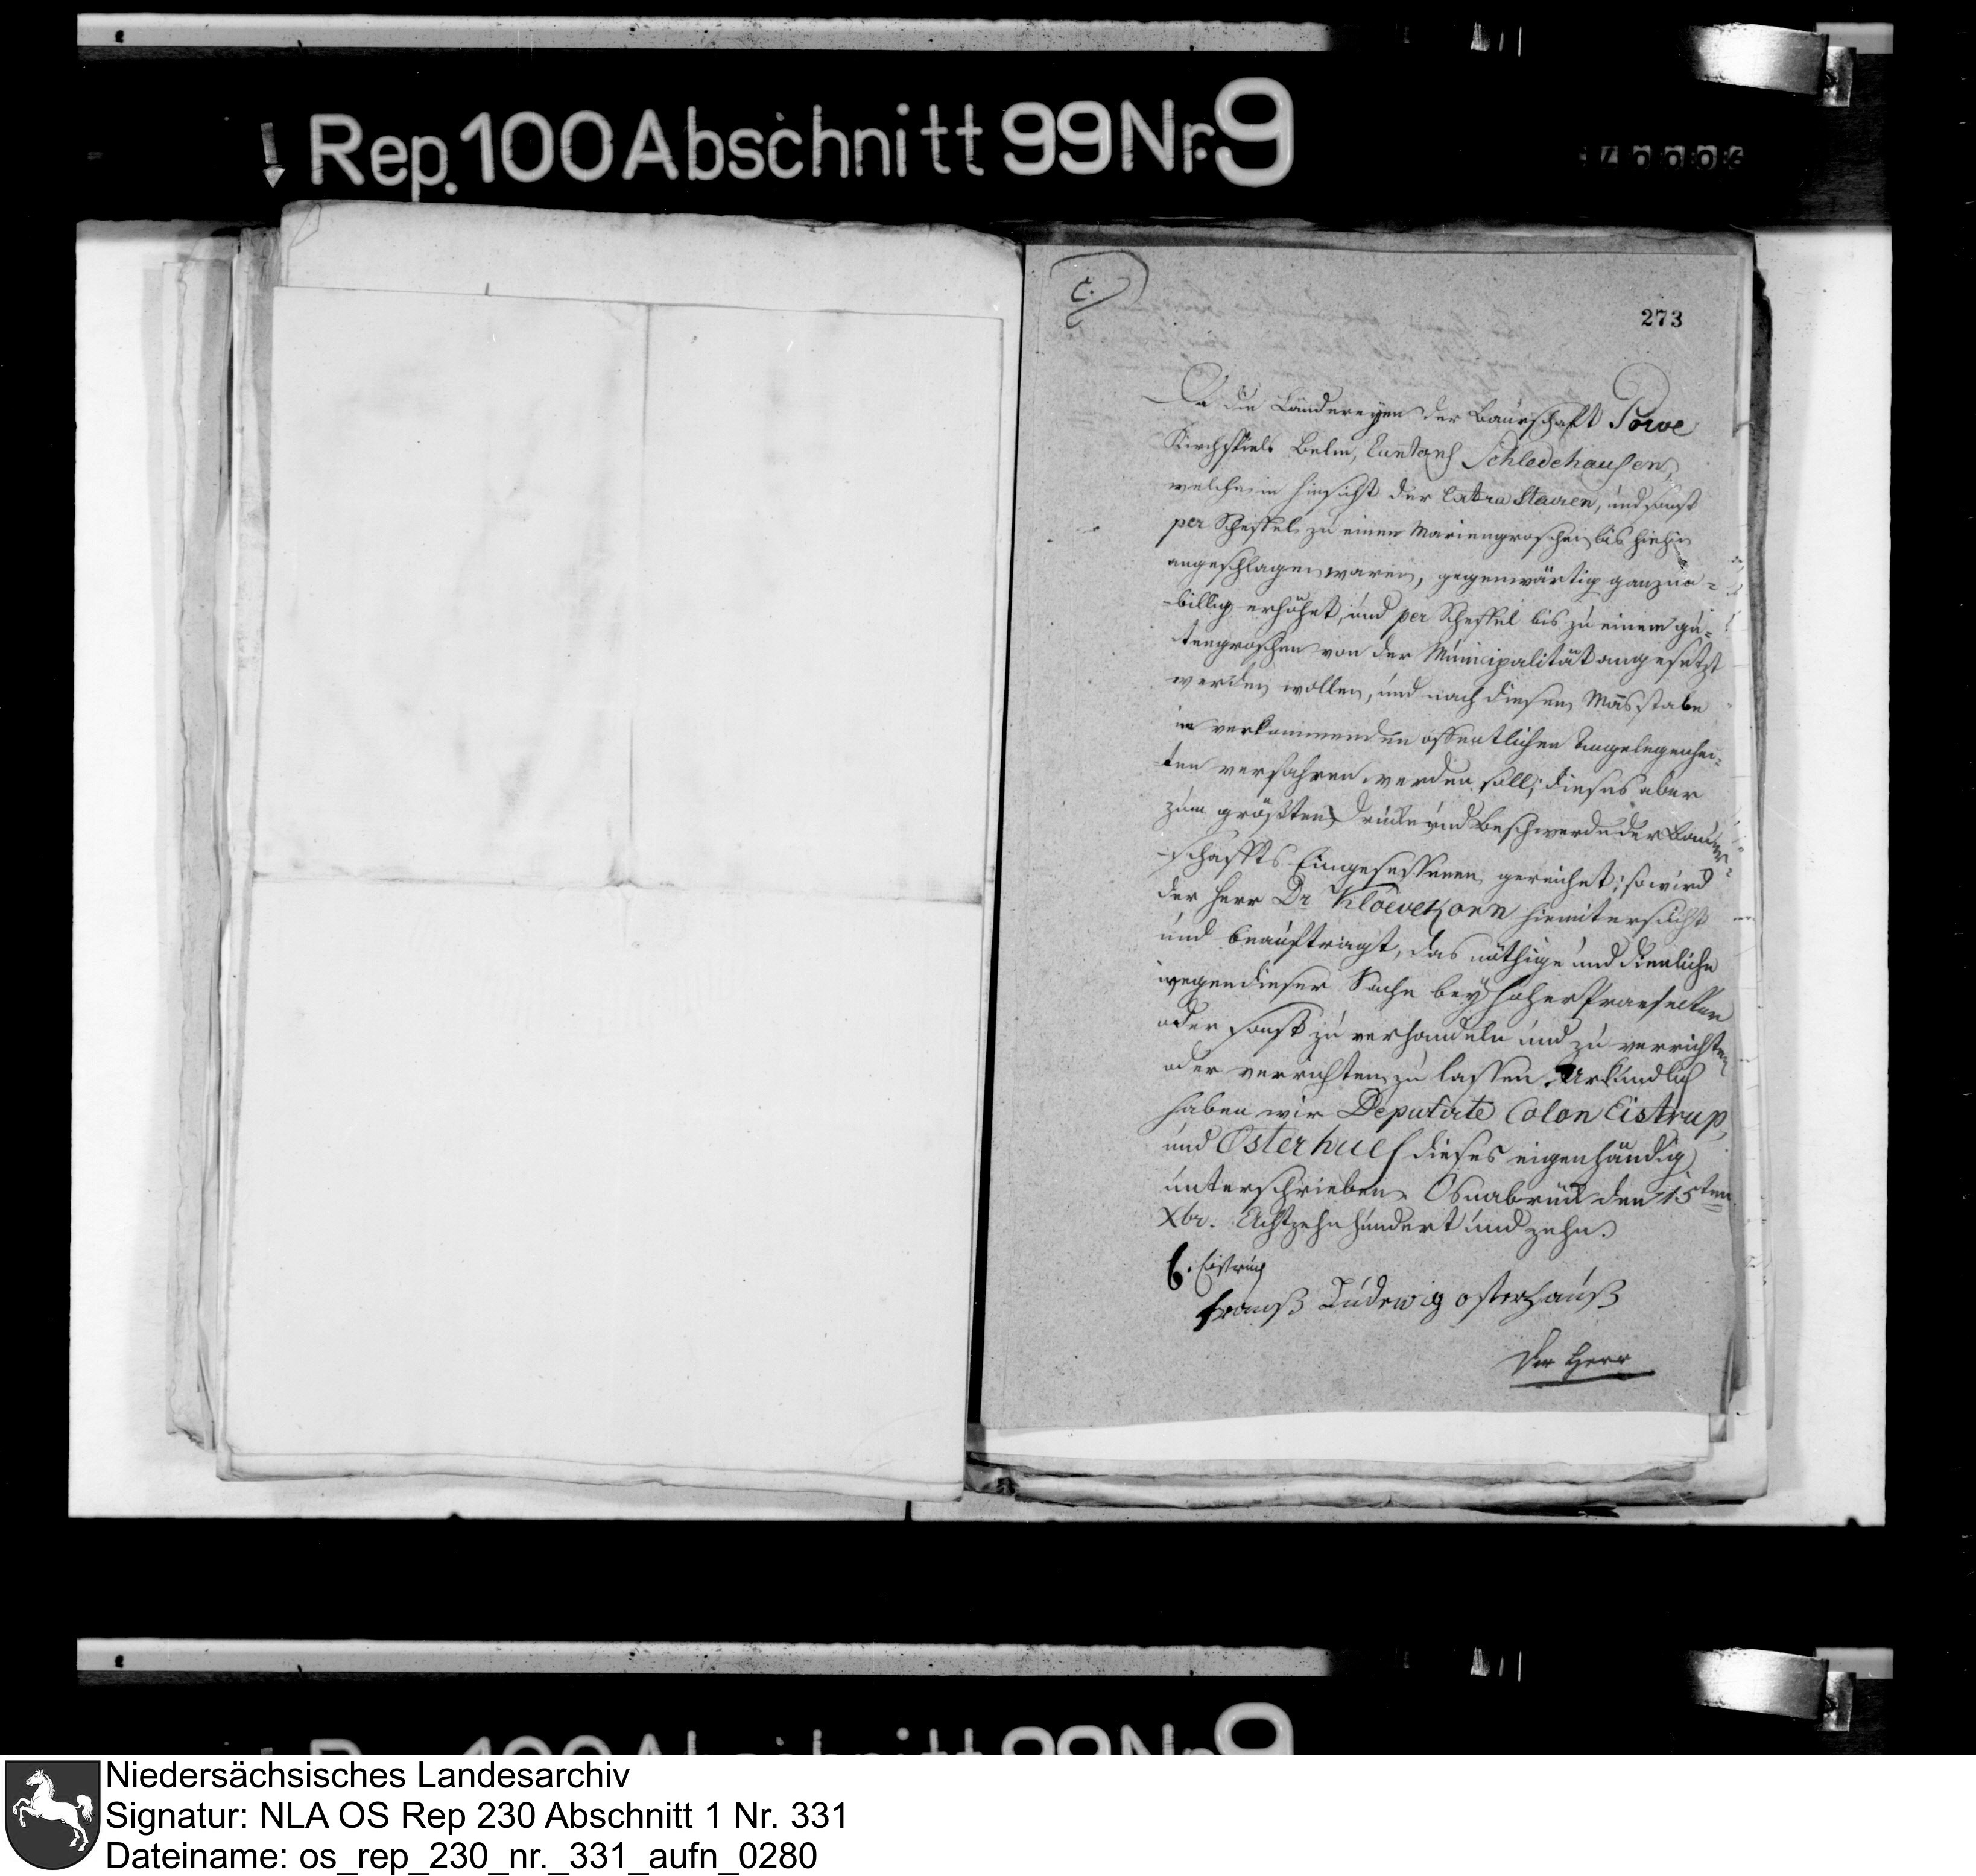 Rep. 100 Abschnitt 99 Nr. 9
C.
273
Da die Ländereyen der Baurschaft Powe
Kirchspiels Belm, Cantons Schledehausen,
welche in Hinsicht der Extra Steuren, und sonst
per Scheffel zu einen Mariengroschen bis hiehin
angeschlagen waren, gegenwärtig ganz un=
billig erhöhet, und per Scheffel bis zu einem gu=
tengroschen von der Municipalität angesetzt
werden wollen, und nach diesen Maasstabe
in vorkommenden öffentlichen Angelegenhei=
ten verfahren werden soll; dieses aber
zum größten Drucke und Beschwerde der Bauer=
schaffts Eingesessenen gereichet; so wird
der Herr Dr Kloevekorn hiemit ersucht
und beauftragt, das nöthige und dienliche
wegen dieser Sache bey hoher Praefectur
oder sonst zu verhandeln und zu verrichten
oder verrichten zu lassen. Urkundlich
haben wir Deputirte Colon Eistrup,
und Osterhues dieses eigenhändig
unterschrieben. Osnabrück den 15ten
Xbr. Achtzehnhundert und zehn.
C. Eistrup
Franß Ludewig osterhauß
Der Herr
Rep. 100 Abschnitt 99 Nr. 9
Niedersächsisches Landesarchiv
Signatur: NLA OS Rep 230 Abschnitt 1 Nr. 331
Dateiname: os_rep_230_nr._331_aufn_0280